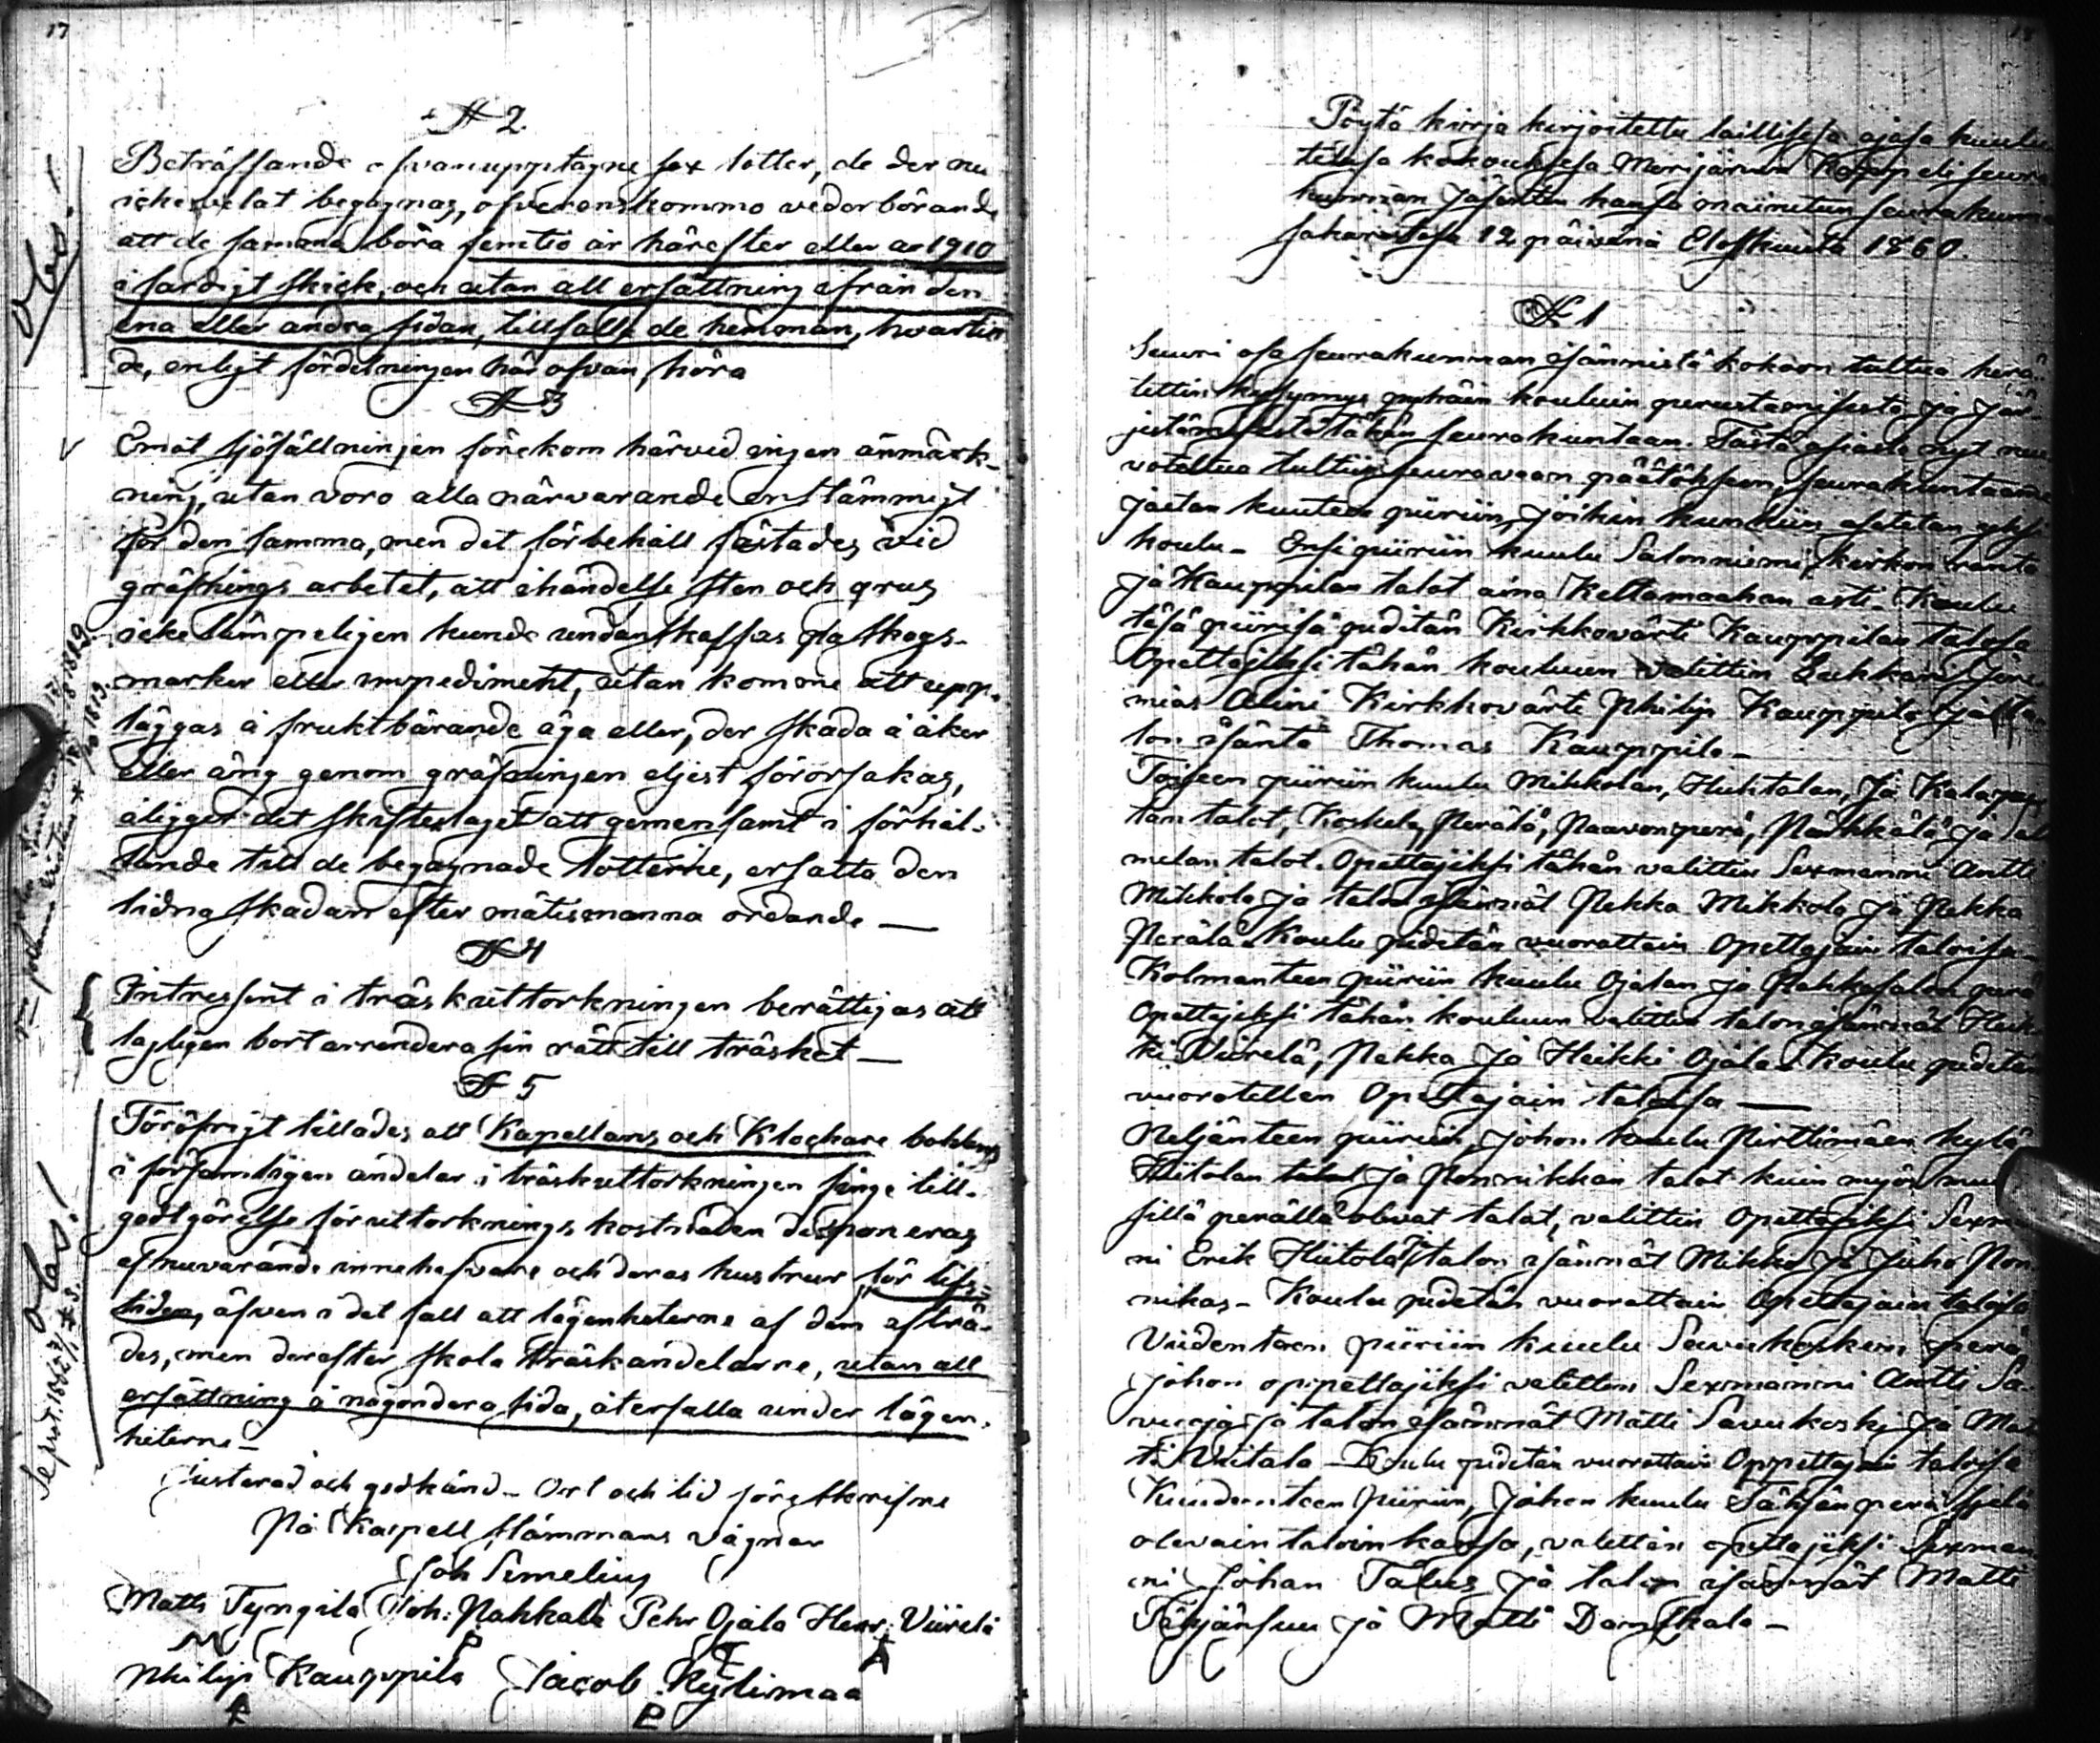 17
§ 2
Beträffande ofvanuptagne sex lotter, de der nu
icke velat begagnas, öfverenskommo vederbörande
att de samma böra femtio år härefter eller år 1910
i färdigt skick, och utan all ersättning ifrån den
ena eller andra sidan, tillfalla de hemman, hvartill
de, enligt fördelningen här ofvan, höra
Obs!
§ 3
Emot sjöfällningen förekom härvid ingen anmärk-
ning, utan voro alla närvarande enstämmigt
för den samma, men det förbehåll fästades vid
gräfnings arbetet, att ihändelse sten och grus
icke lämpeligen kunde undanskaffas på skogs-
marker eller impediment, utan komme att upp-
läggas å fruktbärande äga eller, der skada å åker
eller äng genom gräfningen eljest förorsakas,
åligger det skifteslaget att gemensamt i förhål-
lande till de begagnade lotterne, ersätta den
lidna skadan efter mätismanna ordande —
§ 4
Intressent i träskuttorkningen berättigas att
lagligen bortarrendera sin rätt till träsket —
§ 5
Föröfrigt tillades att Kapellans och Klockare bohlens
i församlingen andelar i träskuttorkningen finge till-
godtgörelse för uttorknings kostnaden disponeras
af nuvarande innehafvare och deras hustrur för lifs-
tiden, äfven i det fall att lägenheterne af dem afträ-
des, men derefter skola träskandelarne, utan all
ersättning å någondera sida, återfalla under lägen-
heterne —
Obs!
Se prot. 1862
Justerad och godkänd – Ort och tid föreskrifne
På Kapell stämmans vägnar
Joh Simelius
Matts Tyngilä Joh: Pahkala Pehr Ojala Henr: Viirelä
Philip Kauppila Jacob Kylmaa
Pöytä kirja kirjoitettu laillisesa ajasa kuulu
tetusa kokouksesa Merijärven Kappeli seura
kunnan jäsenten kansa mainitun seurakunna
sakaristosa 12 päivänä Elokuuta 1860.
§ 1
Suuri osa seurakunnan isännistä kokoon tultua herä-
tettin kysymys pyhäin kouluin perustamisesta ja jär-
jestämisestä tähän seurakuntaan. Tästä asiasta nyt neu
votellua tultiin seuravaan päätökseen, seurakuntaame
jaetan kuuteen piiriin, joihin kunkiin asetetan yksi
koulu – Ensi piiriin kuulu Salonniemi, kirkon ranta
ja Kauppilan talot aina Keltamaahan asti – Koulu
täsä piirisä pidetän Kirkkovärti Kauppilan talosa
Opettajiksi tähän kouluun valittiin Lukkari Jere-
mias Alini Kirkkovärti Philip Kauppila ja ta-
lon isäntä Thomas Kauppila –
Toiseen piiriin kuulu Mikkolan, Huhtalan, ja Kalapu
tan talot, Koskela, Perälä, Paavonperä, Pärkkälä ja
melan talot. Opettajiksi tähän valittin Sexmanni Antti
Mikkola ja talon isännät Pekka Mikkola ja Pekka
Perälä. Koulu pidetän vuorottain Opettajain taloisa –
Kolmanteen piiriin kuulu Ojalan ja Pahkasalon perä
Opettajiksi tähän kouluun valittin talon isännät Heik
ki Viirelä, Pekka ja Heikki Ojala. Koulu pidetän
vuorotellen Opettajain talosa —
Neljänteen piiriin, johon kuulu Pirttimäen kylä
Hiitolan talot ja Ponnikkan talot kuin myös muu
sillä perällä olevat talot, valittin Opettajiksi Sexma
ni Erik Hiitola ja talon isännät Mikko ja Juho Pon
nikas – Koulu pidetän vuorottain Opettajain taloisa
Viidenteen piiriin kuulu Savukosken perä,
johon oppettajiksi valittin Sexmanni Antti Sa-
vuoja ja talon isännät Matti Savukoski ja Mat
ti Viitala – Koulu pidetän vuorottain Oppettajain taloisa
Kuudenteen piiriin, johon kuulu Tähjän perä, sielä
olevain taloin kansa, valittin opettajiksi Sexman
ni Johan Talus ja talon isännät Matti
Tähjänsuu ja Matti Danskala –